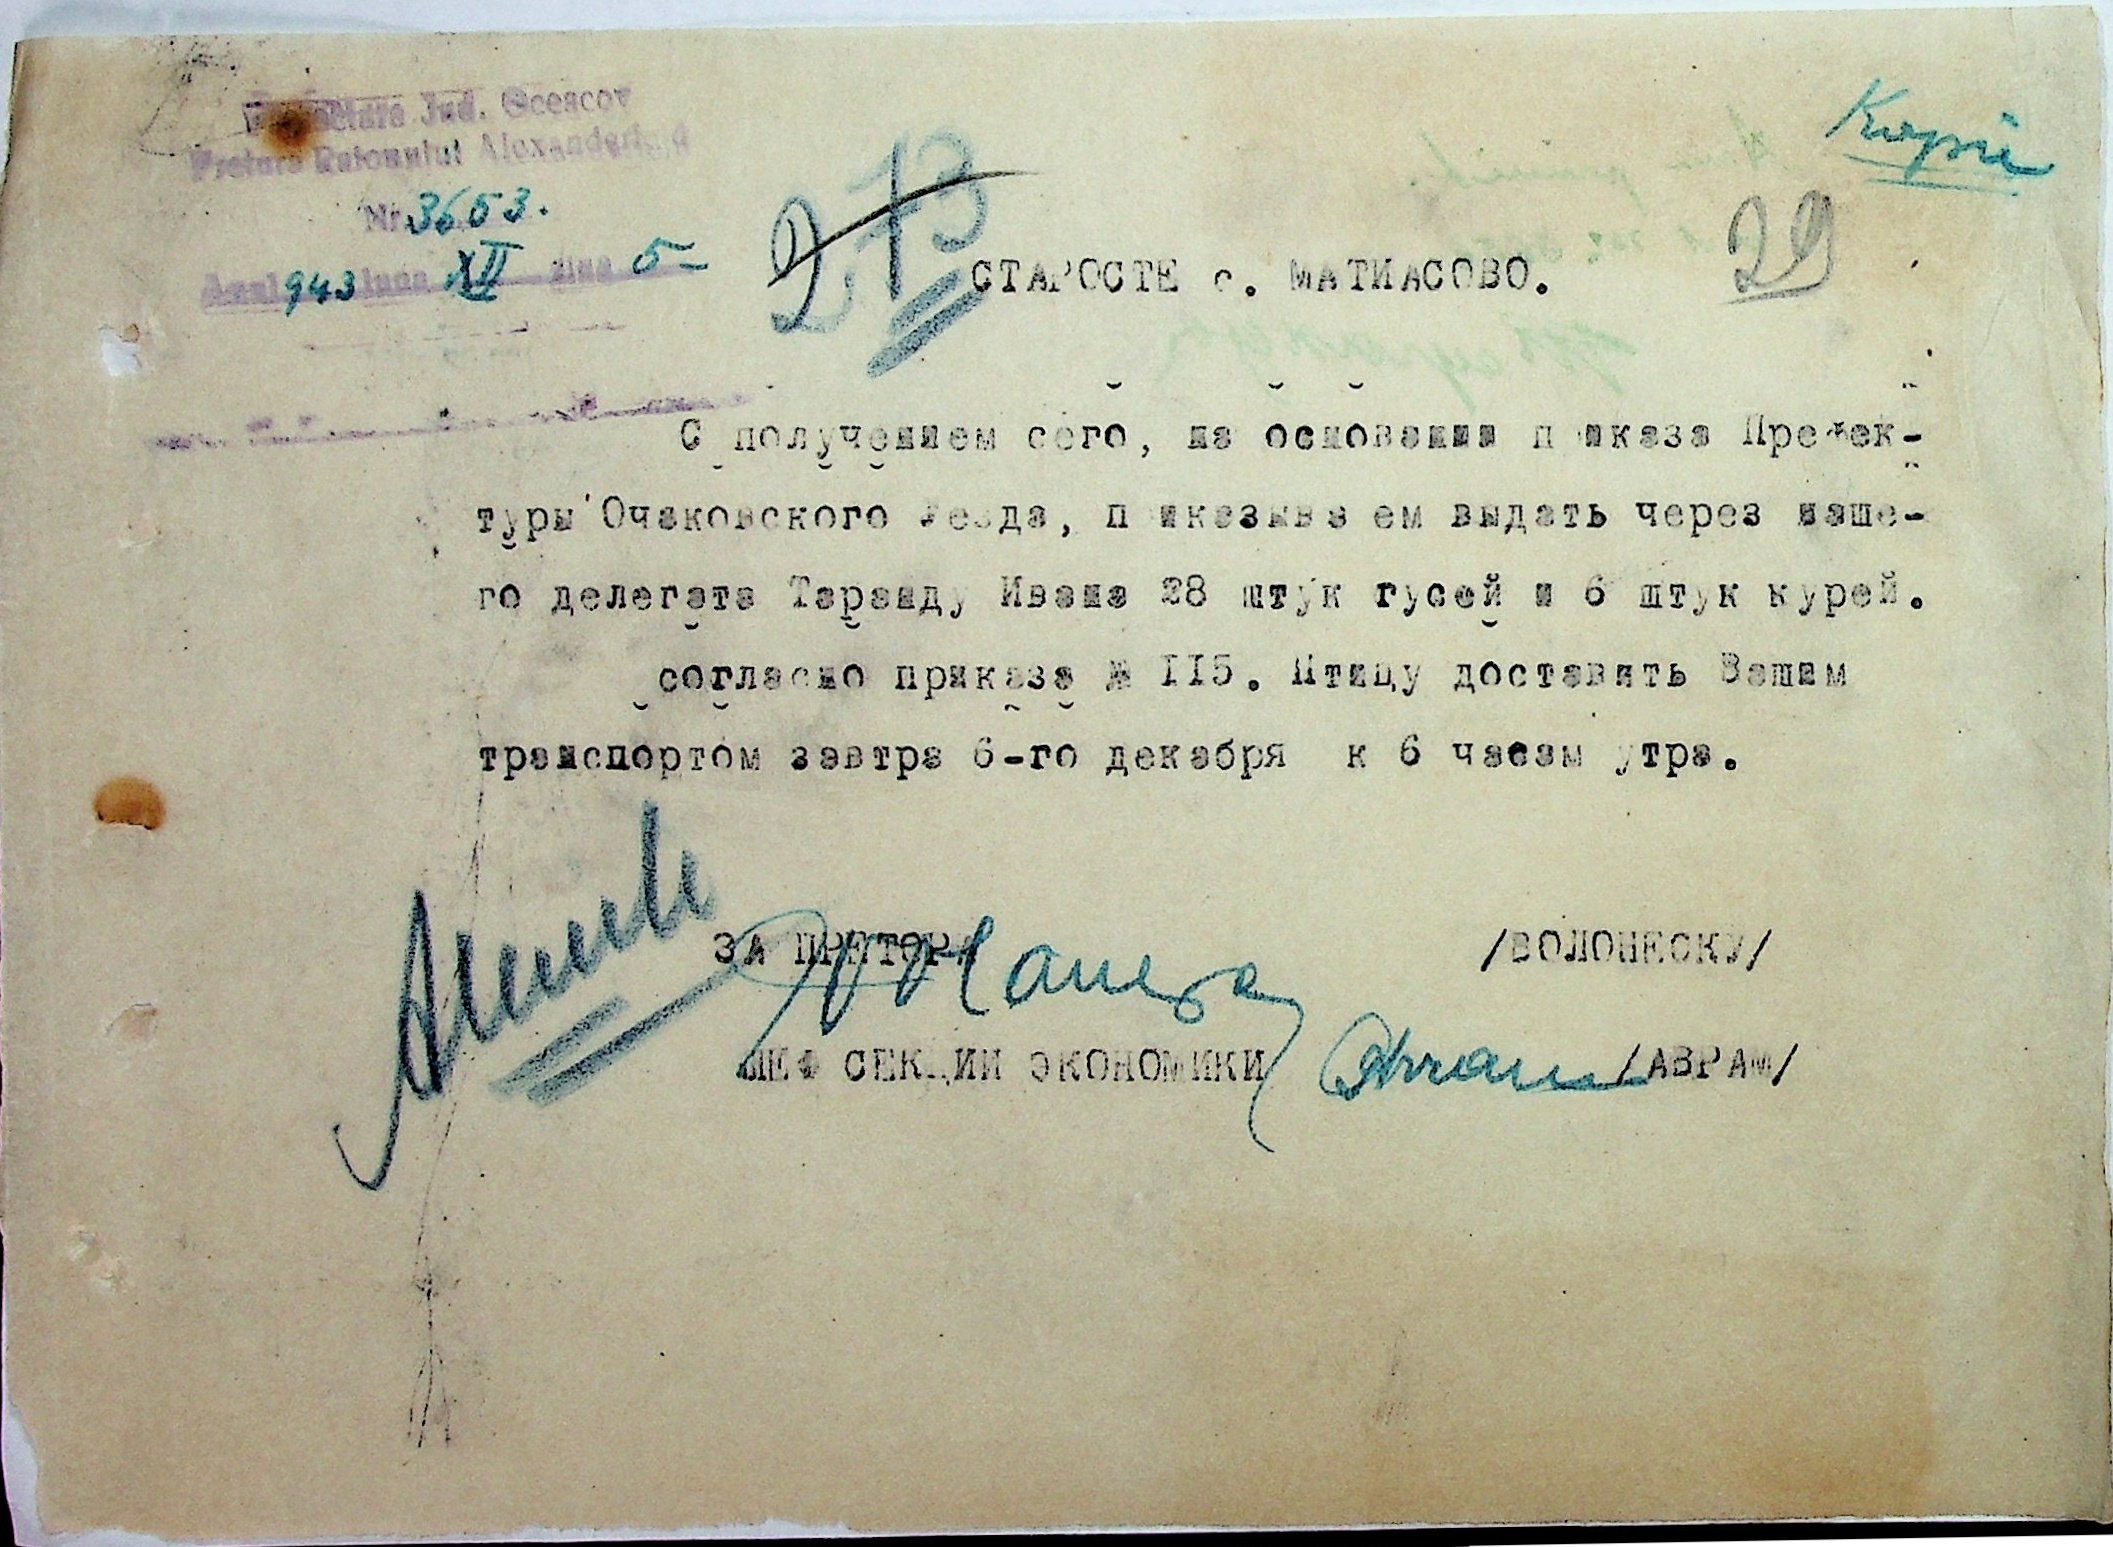 Jud. Oceacov
Pretura Raionului Alexanderfeld
Nr. 3653.
Anul 943 luna XII ziua 5
273
Копія
29
СТАРОСТЕ с. МАТИАСОВО.
С получением сего, на основании приказа Префек-
туры Очаковского Уезда, приказываем выдать через наше-
го делегата Таранду Ивана 28 штук гусей и 6 штук курей.
согласно приказа № 115. Птицу доставить Вашим
транспортом завтра 6-го декабря к 6 часам утра.
ЗА ПРЕТОРА /ВОЛОНЕСКУ/
ШЕФ СЕКЦИИ ЭКОНОМИКИ /АВРАМ/